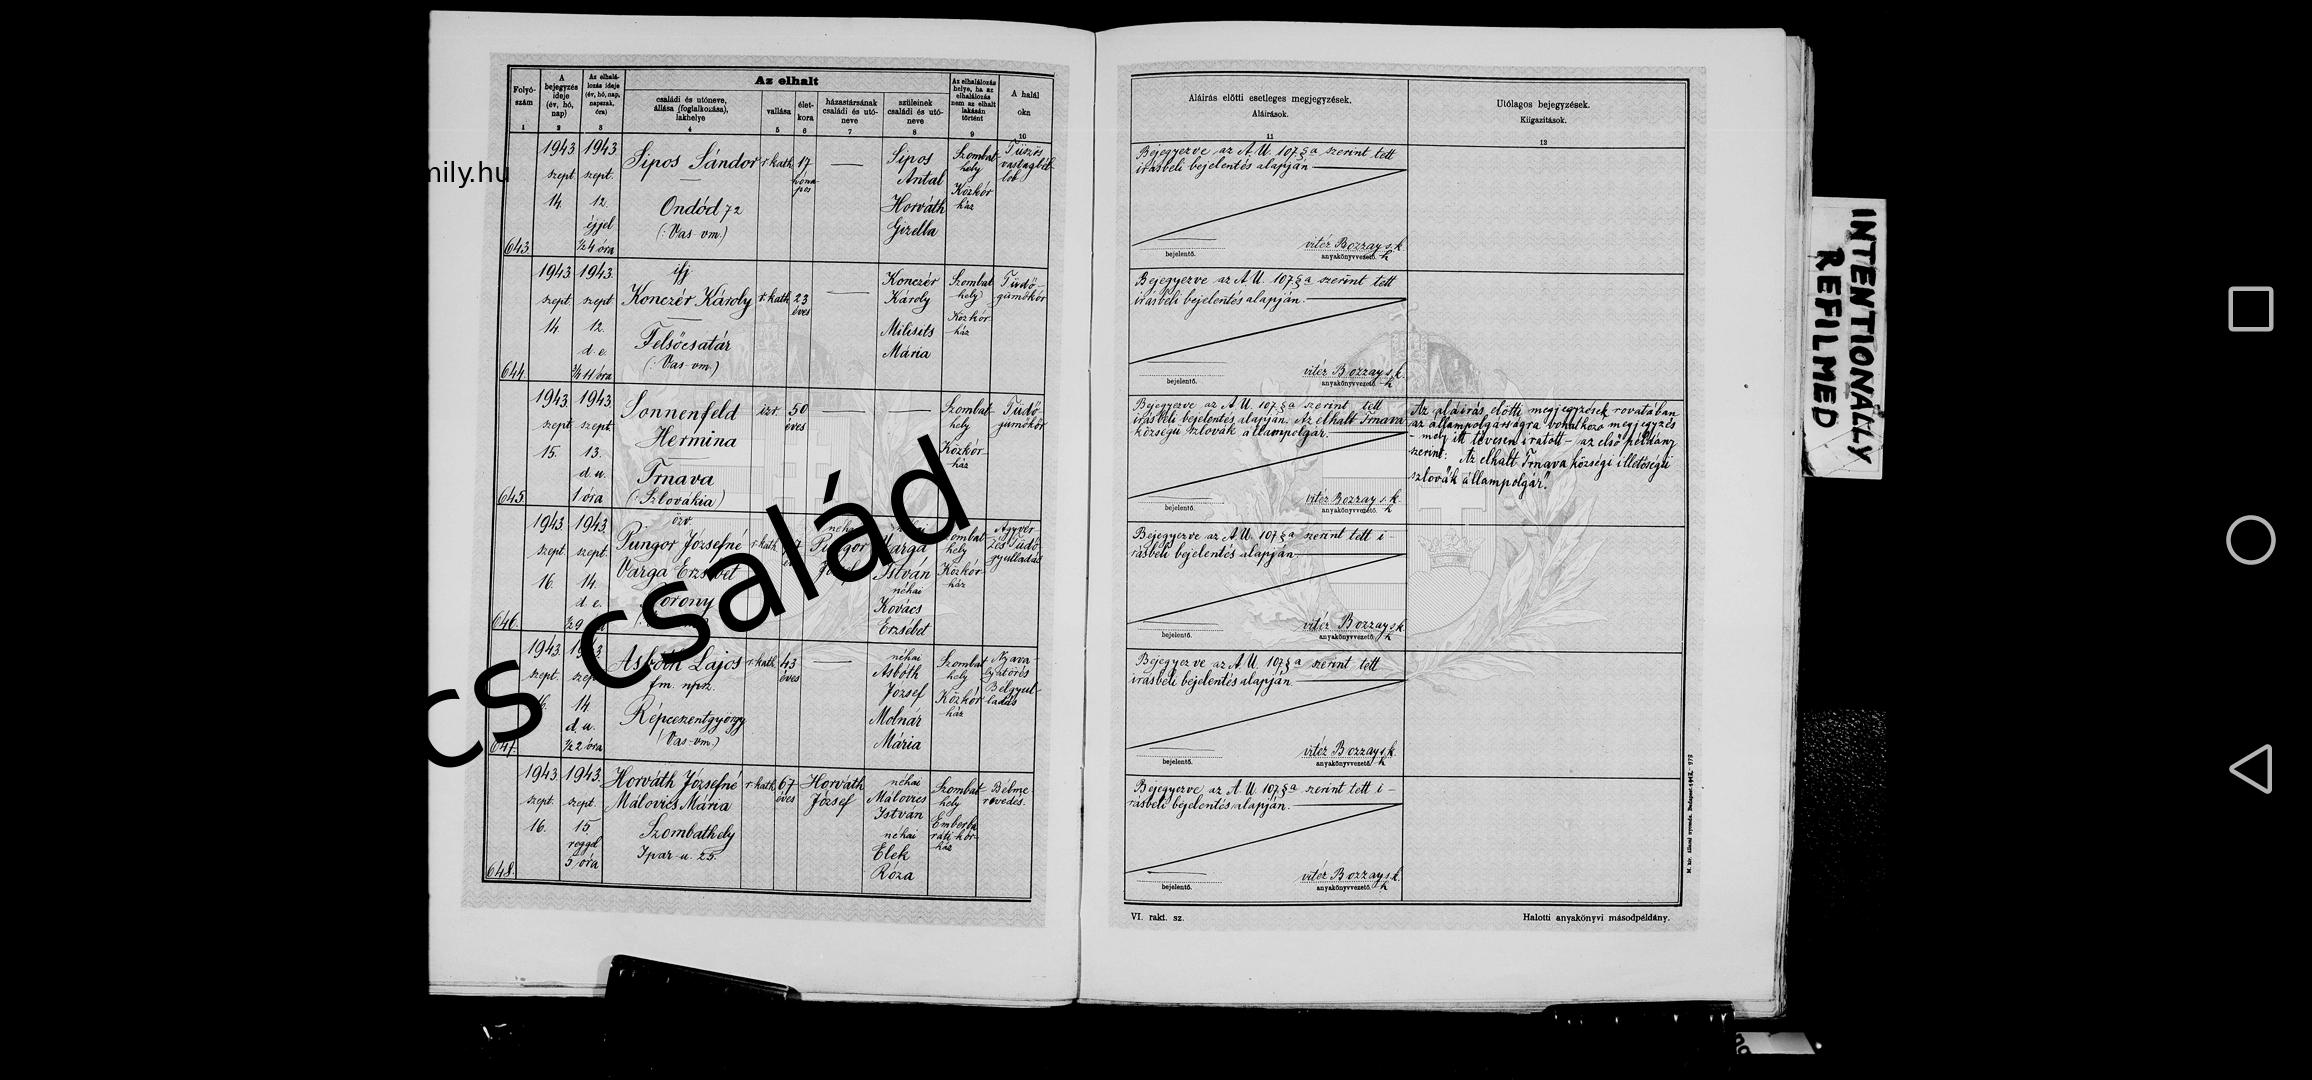 nily.hu
cs család
Az elhalt
Folyó-
szám
A
bejegyzés
ideje
(év, hó,
nap)
Az elhalá-
lozás ideje
(év, hó, nap,
napszak,
óra)
családi és utóneve,
állása (foglalkozása),
lakhelye
vallása
élet-
kora
házastársának
családi és utó-
neve
szüleinek
családi és utó-
neve
Az elhalálozás
helye, ha az
elhalálozás
nem az elhalt
lakásán
történt
A halál
oka
1 2 3 4 5 6 7 8 9 10
643.
1943
szept.
14.
1943
szept.
12.
éjjel
½4 óra
Sipos Sándor
Ondód 72
(: Vas-vm.)
r. kath.
17
hóna-
pos
Sipos
Antal
Horváth
Gizella
Szombat-
hely
Közkór-
ház
Tüszős
vastagbél-
lob
644.
1943.
szept.
14
1943.
szept.
12.
d. e.
¾ 11 óra
ifj
Konczér Károly
Felsőcsatár
(: Vas-vm.)
r. kath.
23
éves
Konczér
Károly
Milisits
Mária
Szombat-
hely
Közkór-
ház
Tüdő-
gümőkór
645.
1943.
szept.
15.
1943.
szept.
13.
d. u.
1 óra
Sonnenfeld
Hermina
Trnava
(: Szlovákia)
izr.
50
éves
Szombat-
hely
Közkór-
ház
Tüdő-
gümőkór
646.
1943
szept.
16.
1943.
szept.
14.
d. e.
½ 9
özv.
Pungor Józsefné
Varga Erzsébet
r. kath.
néhai
Pungor
néhai
Varga
István
néhai
Kovács
Erzsébet
hely
Közkór-
ház
Agyvér-
zés Tüdő-
gyulladás
647.
1943.
szept.
szept.
14
d. u.
½ 2 óra
Asbóth Lajos
fm. npsz.
Répceszentgyörgy
(Vas-vm.)
r. kath.
43
éves
néhai
Asbóth
József
Molnár
Mária
Szombat-
hely
Közkór-
ház
Nyava-
lyatörés
Bélgyul-
ladás
648.
1943.
szept.
16.
1943.
szept.
15
reggel
5 óra
Horváth Józsefné
Málovics Mária
Szombathely
Ipar-u. 25.
r. kath.
67
éves
Horváth
József
néhai
Málovics
István
néhai
Elek
Róza
Szombat-
hely
Emberba-
ráti-kór-
ház
Bélme-
revedés.
Aláírás előtti esetleges megjegyzések.
Aláírások.
11
Utólagos bejegyzések.
Kiigazítások.
12
Bejegyezve az A. U. 107. § a szerint tett
írásbeli bejelentés alapján
bejelentő.
vitéz Bozzay s. k.
anyakönyvvezető. h
Bejegyezve az A. U. 107. § a szerint tett
írásbeli bejelentés alapján.
bejelentő.
vitéz Bozzay s. k.
anyakönyvvezető. h
Bejegyezve az A. U. 107. § a szerint tett
írásbeli bejelentés alapján. Az elhalt Trnava
községi szlovák állampolgár.
bejelentő.
vitéz Bozzay s. k.
anyakönyvvezető. h
Az aláírás előtti megjegyzések rovatában
az állampolgárságra vonatkozó megjegyzés
- mely itt tévesen íratott - az első példány
szerint: „Az elhalt Trnava községi illetőségű
szlovák állampolgár."
Bejegyezve az A. U. 107. § a szerint tett í-
rásbeli bejelentés alapján
bejelentő.
vitéz Bozzay s. k.
anyakönyvvezető. h
Bejegyezve az A. U. 107. § a szerint tett
írásbeli bejelentés alapján.
bejelentő.
vitéz Bozzay s. k.
anyakönyvvezető. h
Bejegyezve az A. U. 107. § a szerint tett í-
rásbeli bejelentés alapján.
bejelentő.
vitéz Bozzay s. k.
anyakönyvvezető. h
VI. rakt. sz.
Halotti anyakönyvi másodpéldány.
INTENTIONALLY
REFILMED